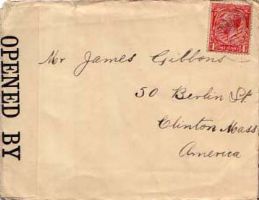 OPENED BY
Mr James Gibbons
50 Berlin St
Clinton Mass
America